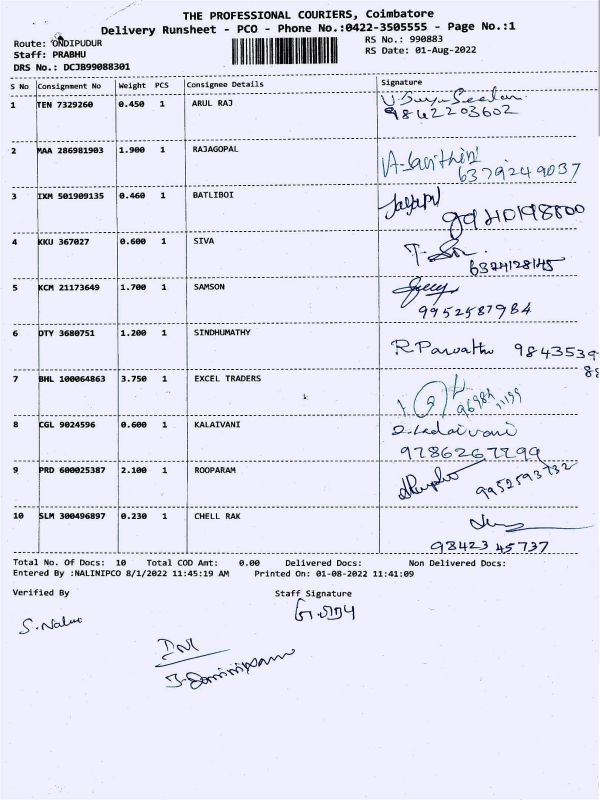 THE PROFESSIONAL COURIERS, Coimbatore
Delivery Runsheet - PCO - Phone No.:0422-3505555 - Page No.:1
Route: ONDIPUDUR
RS No.: 990883
Staff: PRABHU
RS Date: 01-Aug-2022
DRS No.: DCJB99088301
S No Consignment No Weight PCS Consignee Details Signature
1 TEN 7329260 0.450 1 ARUL RAJ
9842203602
2 MAA 286981903 1.900 1 RAJAGOPAL
6379249037
3 IXM 501909135 0.460 1 BATLIBOI
4 KKU 367027 0.600 1 SIVA
6374128145
5 KCM 21173649 1.700 1 SAMSON
9952587984
6 DTY 3680751 1.200 1 SINDHUMATHY
R Parvathi 9843539
88
7 BHL 100064863 3.750 1 EXCEL TRADERS
8 CGL 9024596 0.600 1 KALAIVANI
9786267799
9 PRD 600025387 2.100 1 ROOPARAM
9952593732
10 SLM 300496897 0.230 1 CHELL RAK
9842345737
Total No. Of Docs: 10 Total COD Amt: 0.00 Delivered Docs: Non Delivered Docs:
Entered By :NALINIPCO 8/1/2022 11:45:19 AM Printed On: 01-08-2022 11:41:09
Verified By Staff Signature
S. Nalini